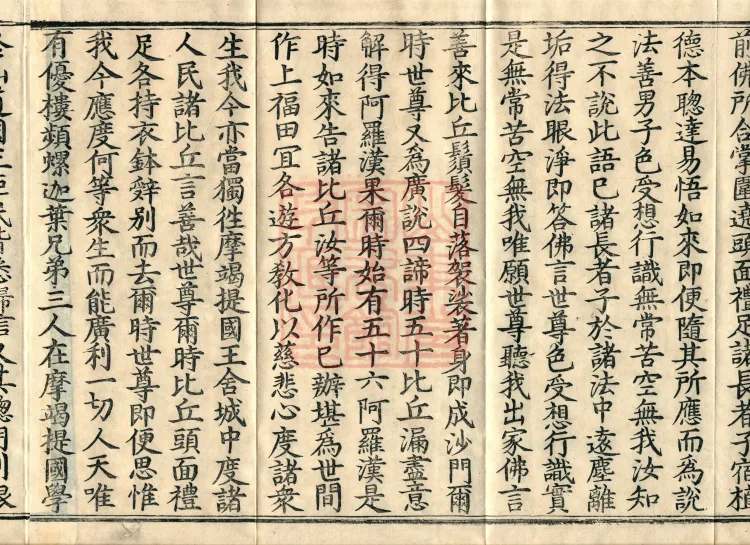 前佛所合掌圍遶頭面禮足諸長者子宿植
德本聰達易悟如來即便隨其所應而爲說
法善男子色受想行識無常苦空無我汝知
之不說此語已諸長者子於諸法中遠塵離
垢得法眼淨即答佛言世尊色受想行識實
是無常苦空無我唯願世尊聽我出家佛言
善來比丘鬚髮自落袈裟著身即成沙門爾
時世尊又爲廣說四諦時五十比丘漏盡意
解得阿羅漢果爾時始有五十六阿羅漢是
時如來告諸比丘汝等所作已辦堪爲世間
作上福田冝各遊方敎化以慈悲心度諸衆
生我今亦當獨徃摩竭提國王舍城中度諸
人民諸比丘言善哉世尊爾時比丘頭面禮
足各持衣鉢辤別而去爾時世尊即便思惟
我今應度何等衆生而能廣利一切人天唯
有優樓頻螺迦葉兄弟三人在摩竭提國學
仙道國王臣民皆悉歸信又其聰明利根